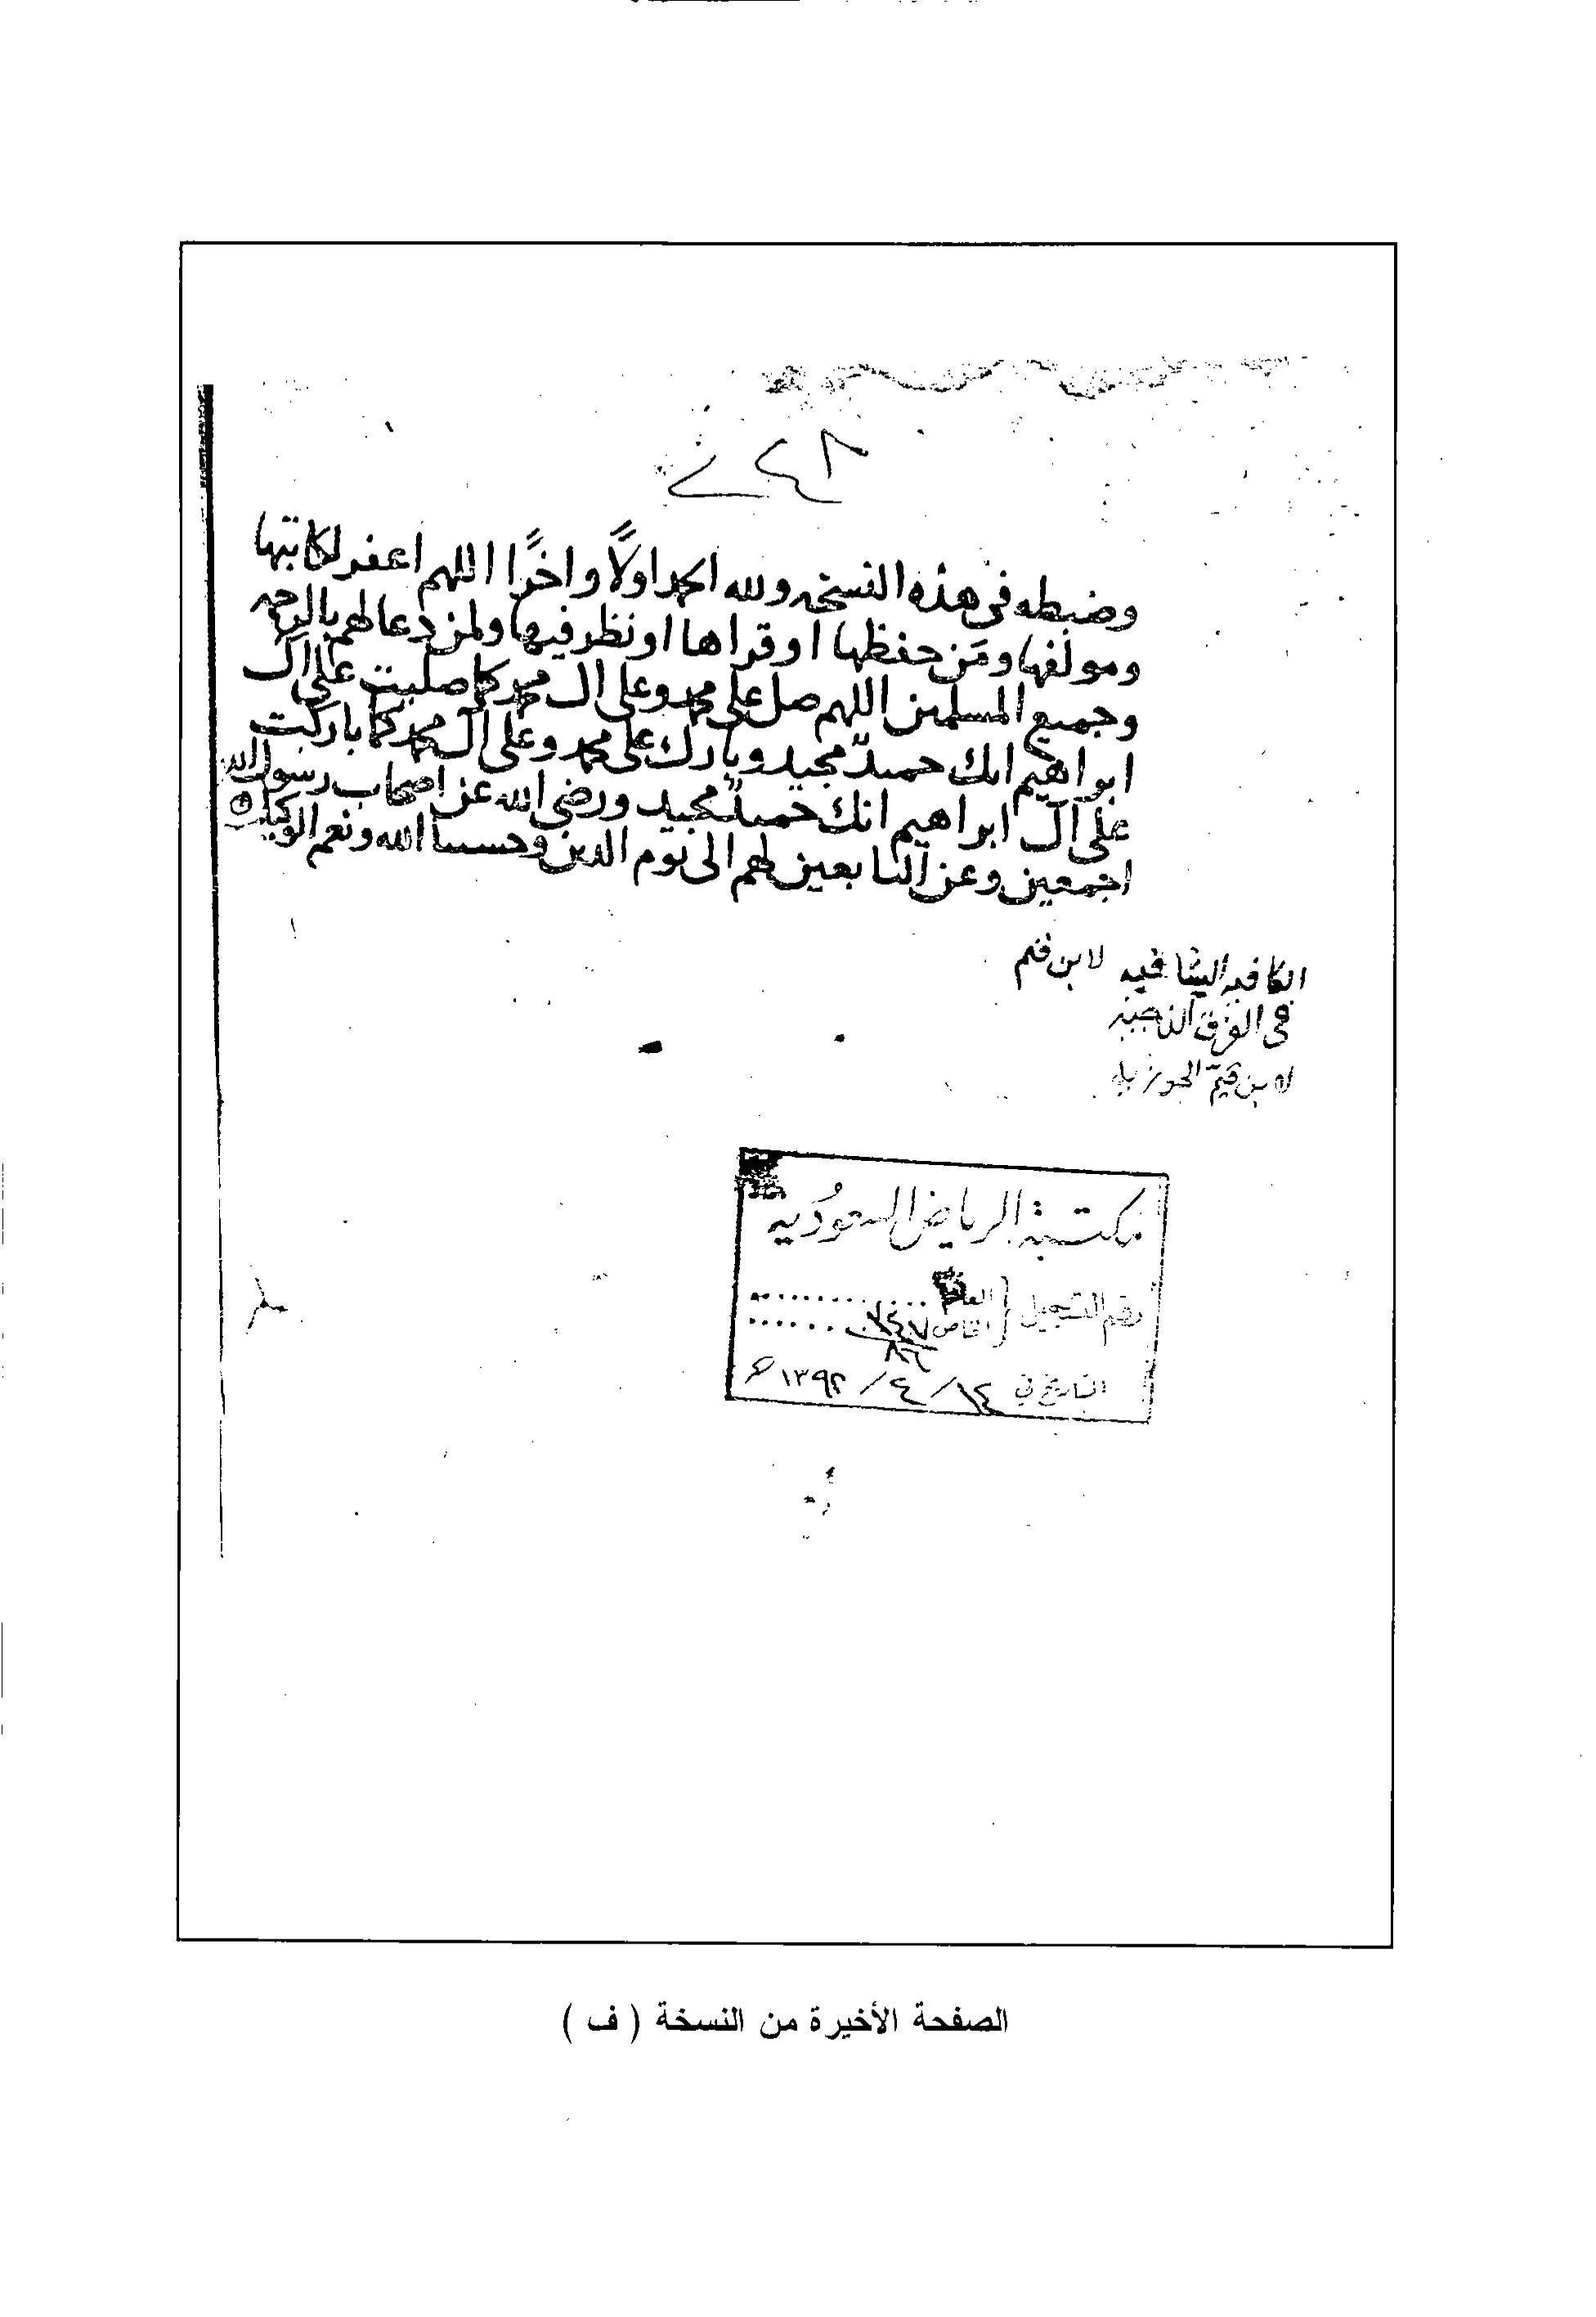 وضبطه في هذه النسخه ولله الحمد اولاً واخرًا اللهم اغفر لكاتبها
ومولفها ومَن حفظها او قراها او نظر فيها ولمن دعا لهم بالرحمه
وجميع المسلمين اللهم صل على محمد وعلى ال محمد كما صليت على ال
ابراهيم انك حميدٌ مجيد وبارك على محمد وعلى ال محمد كما باركت
على ال ابراهيم انك حميدٌ مجيد ورضي الله عن اصحاب رسول الله
اجمعين وعن التابعين لهم الى يوم الدين وحسبنا الله ونعم الوكيل
الكافيه الشافيه لابن قيم
في الفرق الناجيه
لابن قيم الجوزيه
مكتبة الرياض السعودية
رقم التسجيل
العام
الخاص
٨٦
التاريخ في ١٤ / ٤ / ١٣٩٢ هـ
الصفحة الأخيرة من النسخة ( ف )